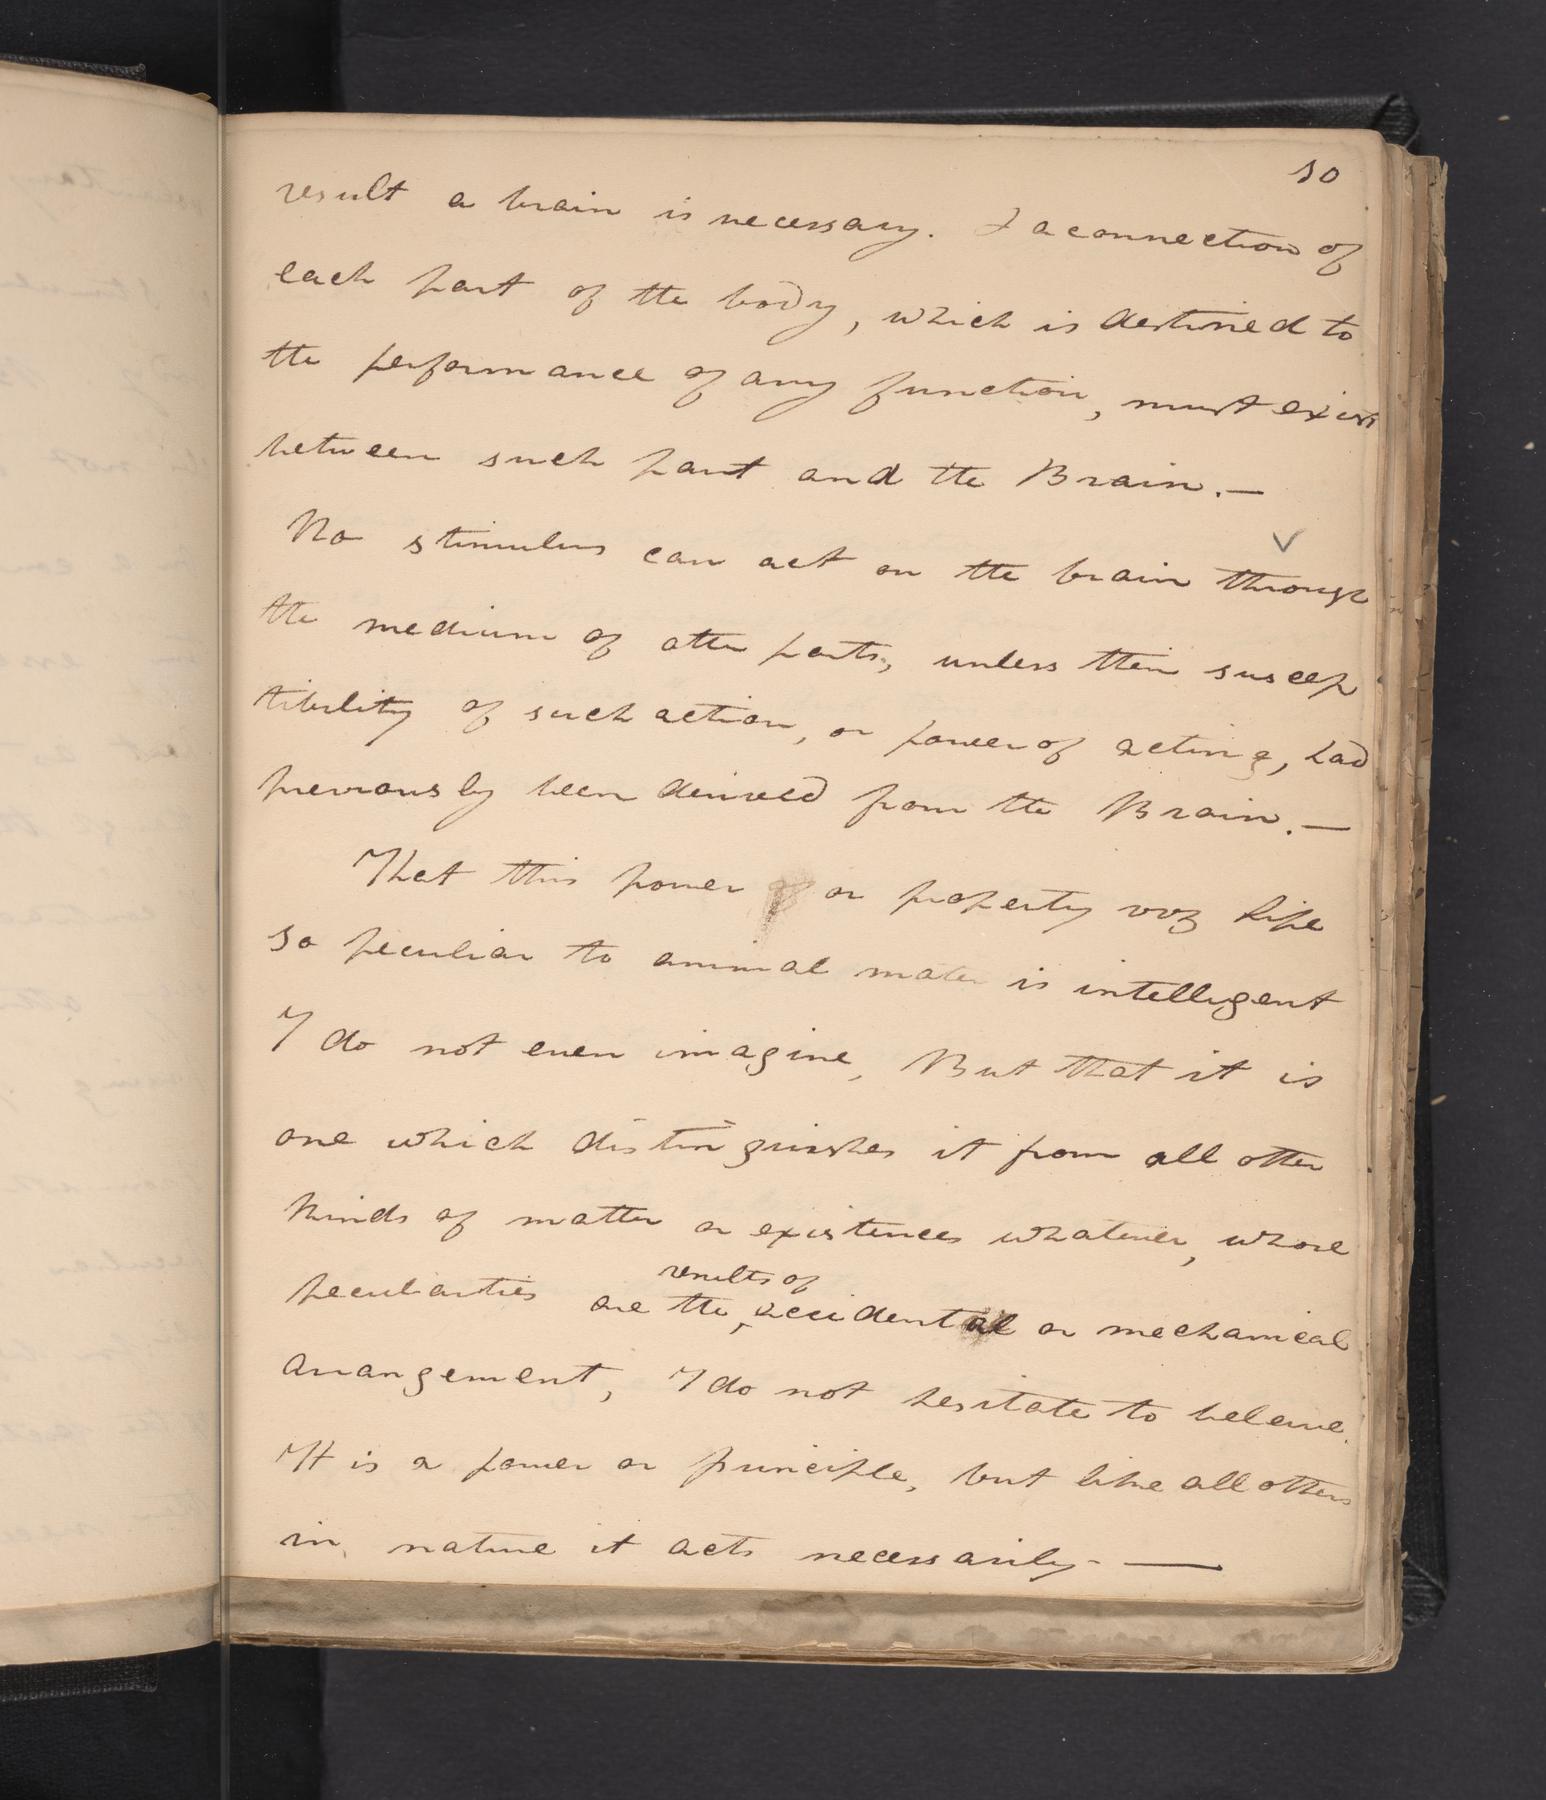 10
result a brain is necessary. & a connection of
each part of the body, which is destined to
the performance of any function, must exist
between such part and the Brain.—
No stimulus can act on the brain through
the medium of other parts, unless their suscep
tibility of such action, or power of acting, had
previously been derived from the Brain.—
That this power or property viz life
so peculiar to animal mater is intelligent
I do not even imagine, But that it is
one which distinguishes it from all other
kinds of matter or existences whatever, whose
results of
peculiarties are the accidental or mechanical
arrangement, I do not hesitate to beleive.
It is a power or principle, but like all others
in nature it acts necessarily - —